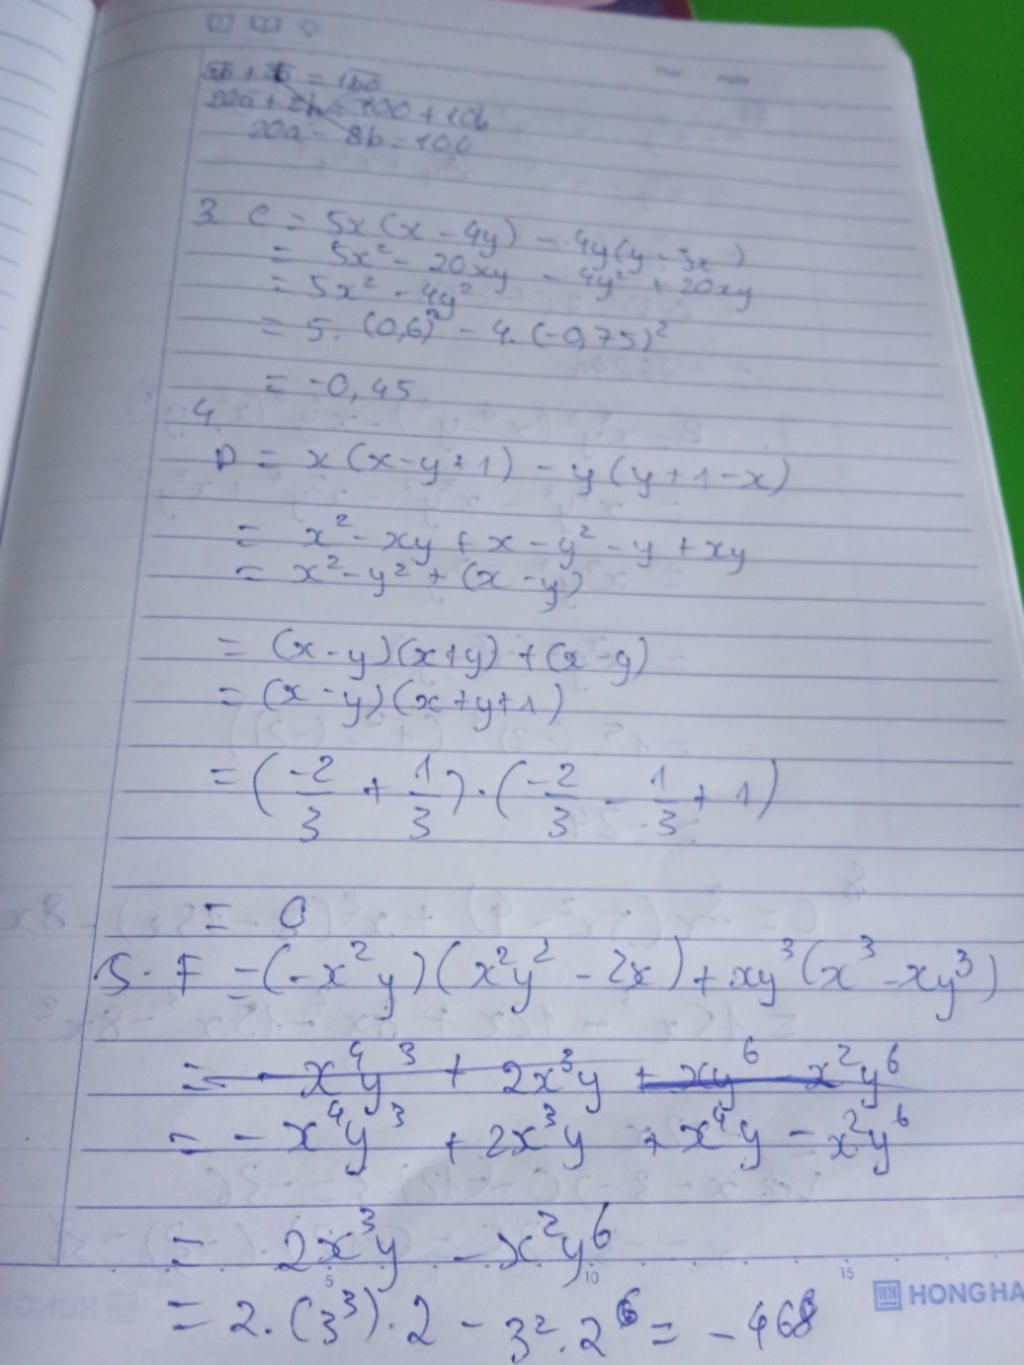 20a - 8b = 100
3 C = 5x(x - 4y) - 4y(y - 5x)
= 5x² - 20xy - 4y² + 20xy
= 5x² - 4y²
= 5. (0,6)² - 4. (-0,75)²
= -0,45
4.
D = x(x-y+1) - y(y+1-x)
= x² - xy + x - y² - y + xy
= x² - y² + (x - y)
= (x-y)(x+y) + (x-y)
= (x-y)(x+y+1)
= (-2/3 + 1/3) . (-2/3 - 1/3 + 1)
= 0
5. F = (-x²y)(x²y² - 2x) + xy³(x³ - xy³)
= - x⁴y³ + 2x³y + xy⁶ - x²y⁶
= - x⁴y³ + 2x³y + x⁴y - x²y⁶
= 2x³y - x²y⁶
= 2.(3³).2 - 3².2⁶ = -468
5 10 15
HONG HA